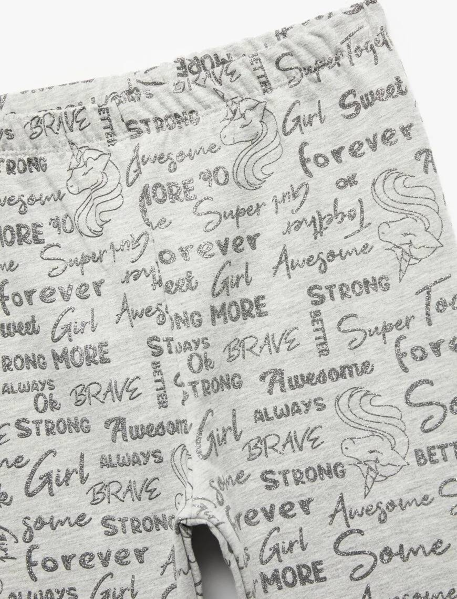 MORE
BRAVE
BETTER
Super Toget
BRAVE
STRONG
Girl Sweet
STRONG
Awesome
forever
Awesome
MORE
OK
MORE
Super Girl
Together
Super Girl
forever
forever
Sweet Girl
Awesome
Sweet Girl
Awes
ING MORE
STRONG
BETTER
Super Tog
STRONG MORE
ST
DAYS
Ok BRAVE
forev
ALWAYS
BETTER
STRONG
Awesome
Ok BRAVE
ALWAYS
So
STRONG
Awesom
Girl
BRAVE
Girl
ALWAYS
STRONG
BETTE
BRAVE
some
STRONG
rever
Awesome
forever
Girl
Some
ALWAYS
Girl
MORE